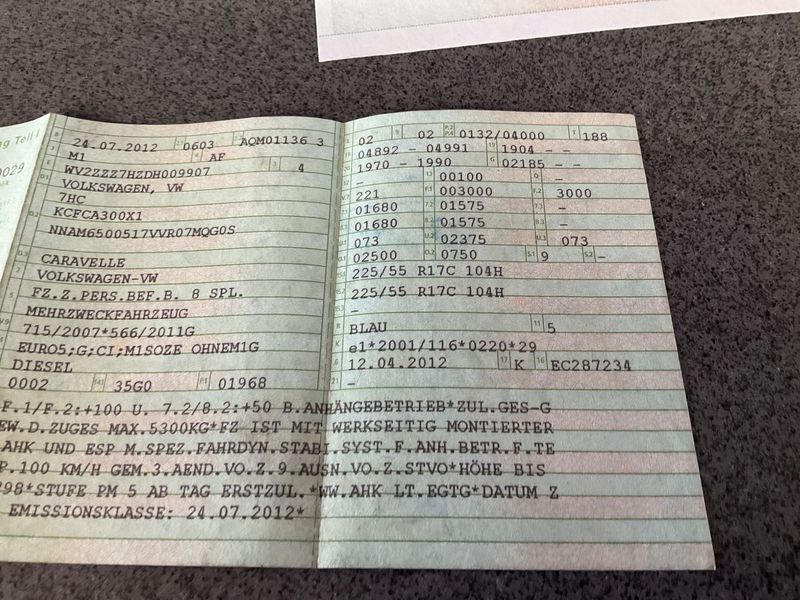 ng Teil I
0029
24.07.2012 0603 AQM01136 3
M1 AF
WV2ZZZ7HZDH009907 4
VOLKSWAGEN, VW
7HC
KCFCA300X1
NNAM6500517VVR07MQG0S
CARAVELLE
VOLKSWAGEN-VW
FZ.Z.PERS.BEF.B. 8 SPL.
MEHRZWECKFAHRZEUG
715/2007*566/2011G
EURO5;G;CI;M1SOZE OHNEM1G
DIESEL
0002 35G0 01968
02 02 0132/04000 188
04892 - 04991 1904 - -
1970 - 1990 02185 - -
- 00100 -
221 003000 3000
01680 01575 -
01680 01575 -
073 02375 073
02500 0750 9 -
225/55 R17C 104H
225/55 R17C 104H
-
BLAU 5
e1*2001/116*0220*29
12.04.2012 K EC287234
-
F.1/F.2:+100 U. 7.2/8.2:+50 B.ANHÄNGEBETRIEB*ZUL.GES-G
EW.D.ZUGES MAX.5300KG*FZ IST MIT WERKSEITIG MONTIERTER
AHK UND ESP M.SPEZ.FAHRDYN.STABI.SYST.F.ANH.BETR.F.TE
P.100 KM/H GEM.3.AEND.VO.Z.9.AUSN.VO.Z.STVO*HÖHE BIS
298*STUFE PM 5 AB TAG ERSTZUL.*WW.AHK LT.EGTG*DATUM Z
EMISSIONSKLASSE: 24.07.2012*